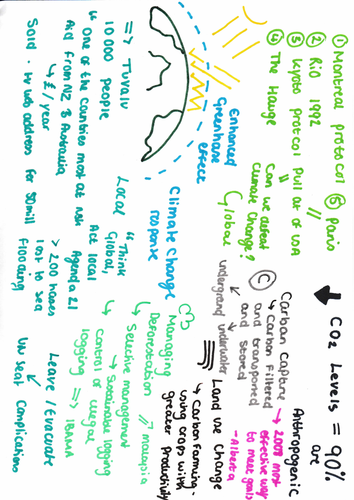 ① Montreal protocol ⑤ Paris
② Rio 1992
③ Kyoto protocol Pull out of USA
④ The Hauge
Can we defeat
climate Change?
Global
Enhanced
Greenhouse
effect
Climate Change
response
=> Tuvalu
10 000 people
"One of the countries most at risk
Aid from NZ & Australia
↳ £ /year
Sold . tv web address for 50mill
Local
"Think
Global,
Act local
Agenda 21
> 200 hates
lost to sea
flooding
Leave / Evacuate
UN seat Complications
CO2 Levels = 90%
are
Anthropogenic
Carbon Capture
↳ Carbon Filtered
and transported
and stored
underground underwater
→ 2008 most
effective way
to make goals
- Alberta
Land use Change
↳ Carbon farming -
using crops with
greater productivity
Managing
Deforestation // malaysia
↳ Selective management
↳ Sustainable logging
control of illegal
logging =>